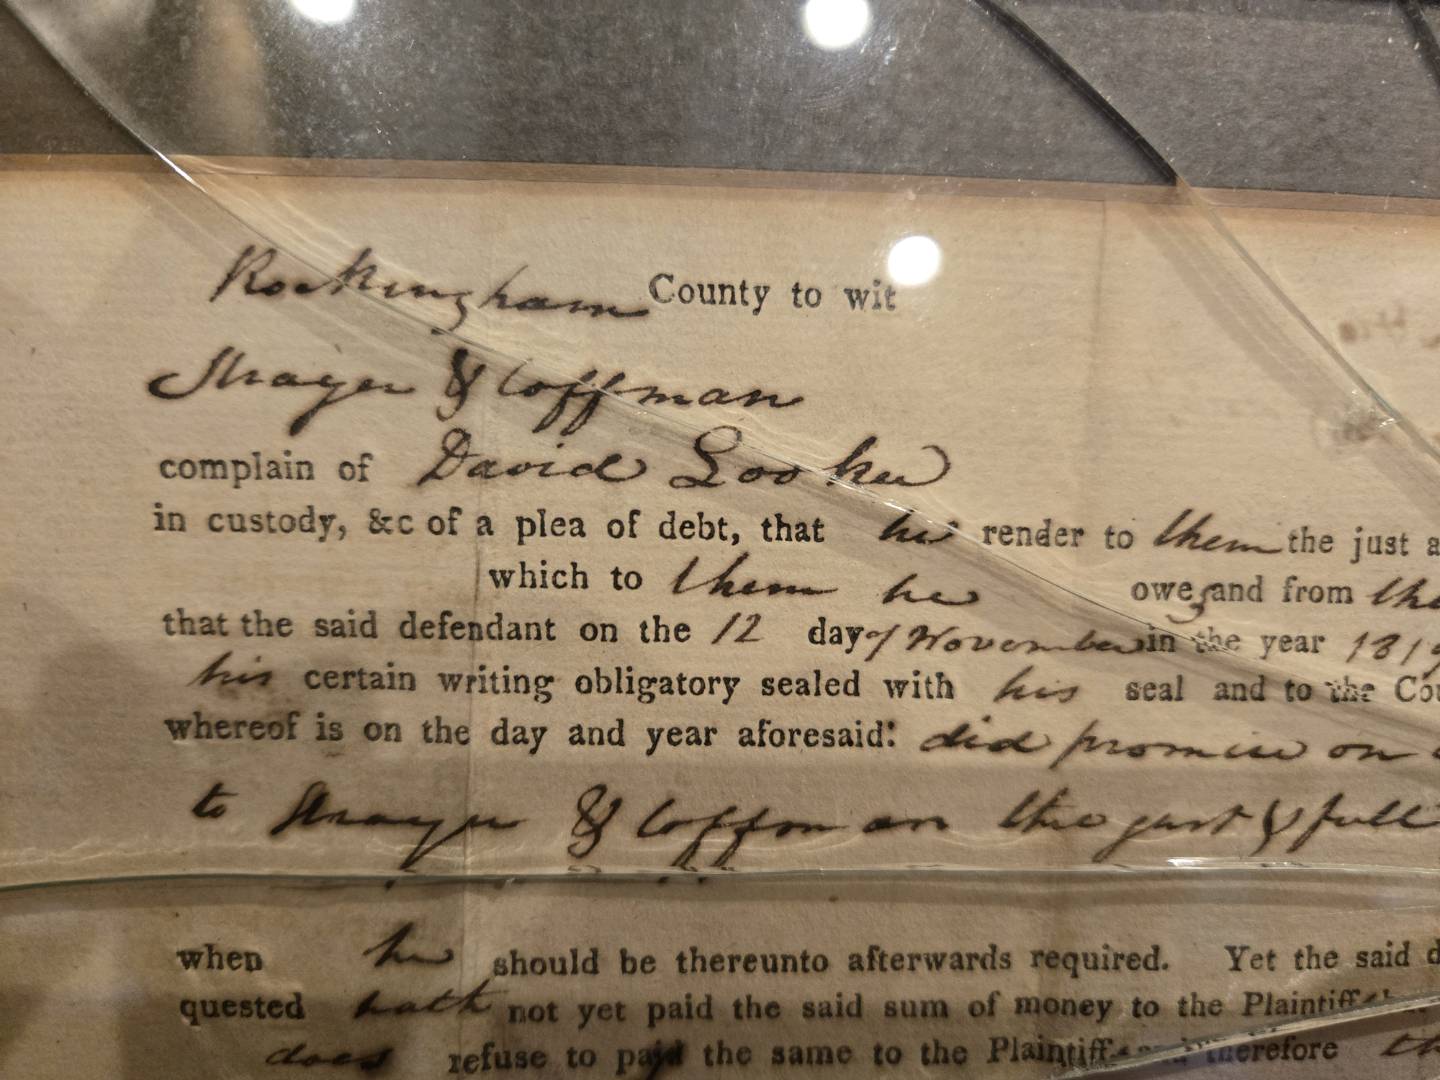 Rockingham County to wit
Strayer & Coffman
complain of David Looker
in custody, &c of a plea of debt, that he render to them the just a
which to them he owes and from the
that the said defendant on the 12 day of November in the year 1819
his certain writing obligatory sealed with his seal and to the Cou
whereof is on the day and year aforesaid: did promise on
to Strayer & Coffman the just & full
when he should be thereunto afterwards required. Yet the said d
quested hath not yet paid the said sum of money to the Plaintiff
does refuse to pay the same to the Plaintiff and therefore th